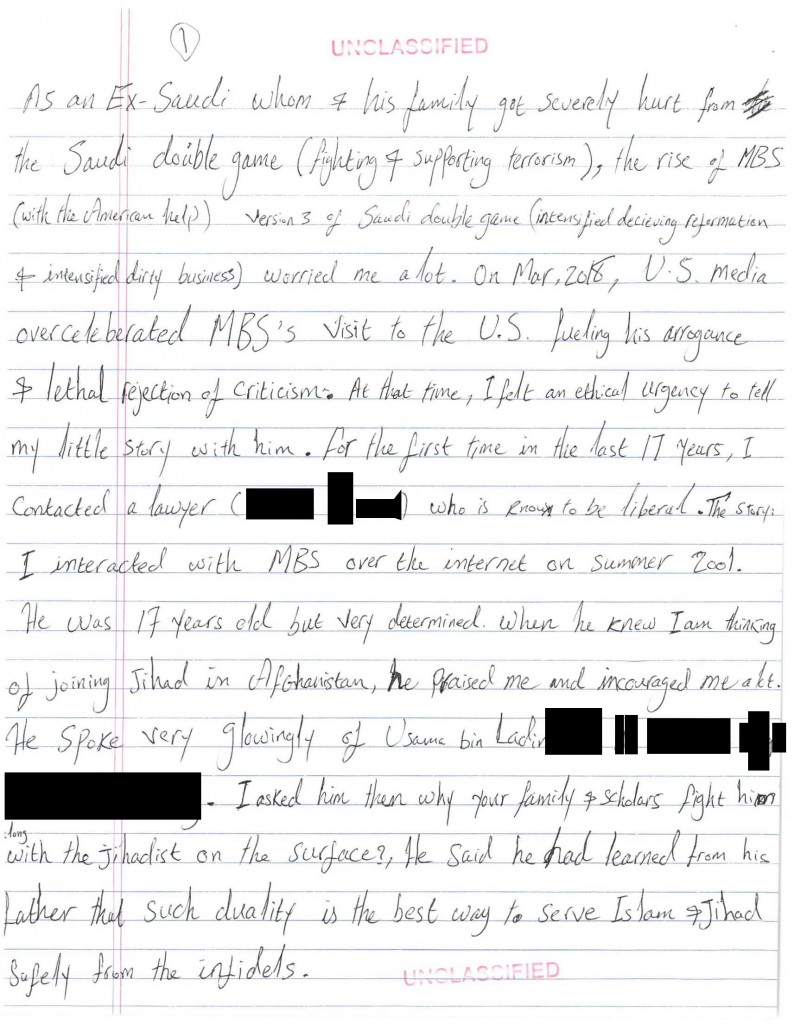 1
UNCLASSIFIED
As an Ex-Saudi whom & his family got severely hurt from
the Saudi double game (fighting & supporting terrorism), the rise of MBS
(with the American help) Version 3 of Saudi double game (intensified decieving reformation
& intensified dirty business) worried me alot. On Mar, 2018, U.S. media
overceleberated MBS's visit to the U.S. fueling his arrogance
& lethal rejection of criticism. At that time, I felt an ethical urgency to tell
my little story with him. For the first time in the last 17 years, I
contacted a lawyer ( ) who is known to be liberal. The story:
I interacted with MBS over the internet on summer 2001.
He was 17 years old but very determined. When he knew I am thinking
of joining Jihad in Afghanistan, he praised me and incouraged me alot.
He spoke very glowingly of Usama bin Ladin
. I asked him then why your family & scholars fight him
long
with the jihadist on the surface?, He said he had learned from his
father that such duality is the best way to serve Islam & Jihad
safely from the infidels.
UNCLASSIFIED